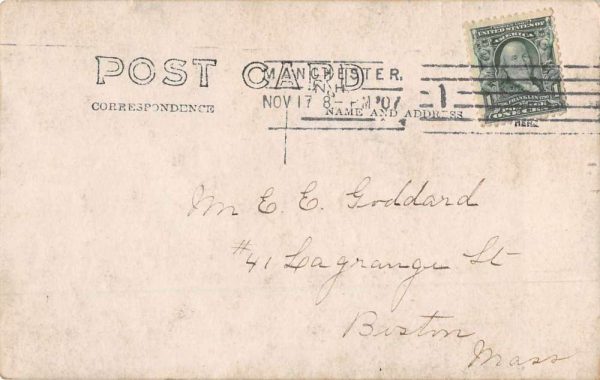 POST CARD
MANCHESTER.
N.H.
NOV 17 8- PM '07
1
CORRESPONDENCE
NAME AND ADDRESS
HERE
UNITED STATES OF
AMERICA
FRANKLIN
ONE
Mr E. E. Goddard
#41 Lagrange St
Boston
Mass